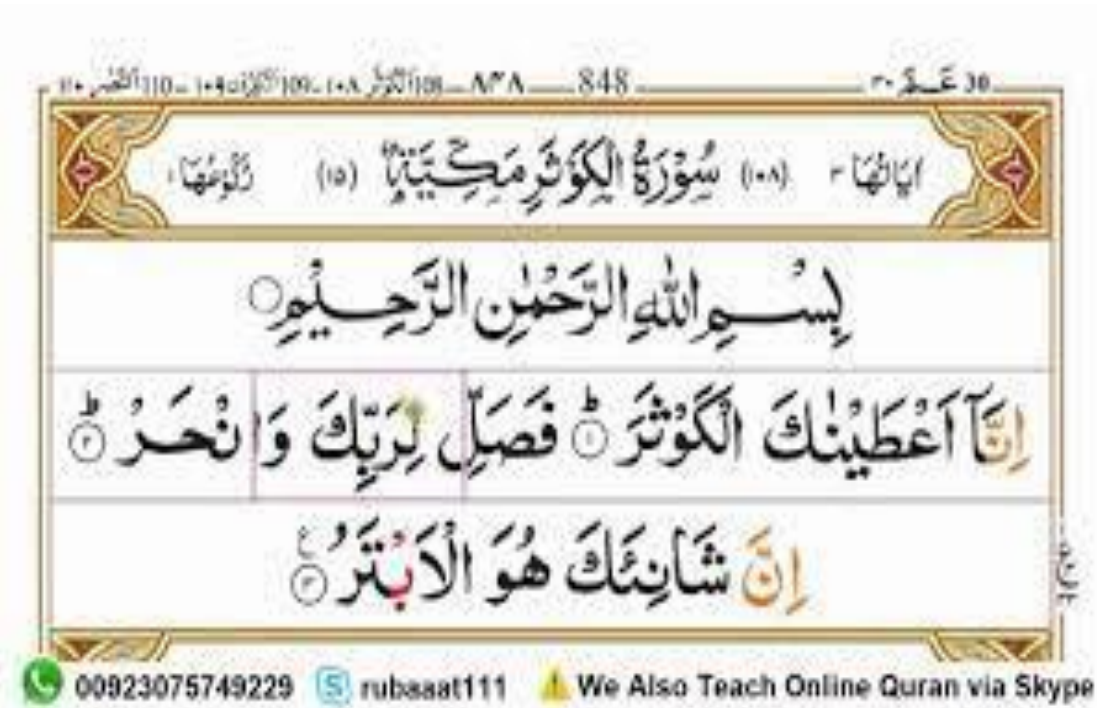 30 عَمَّ ٣٠ 848 ٨٤٨ 108 الكوثر ١٠٨ - 109 ١٠٩ - 110 النصر ١١٠
اٰيَاتُهَا ٣ (١٠٨) سُوْرَةُ الْكَوْثَرِ مَكِّيَّةٌ (١٥) رُكُوْعُهَا ١
بِسْمِ اللّٰهِ الرَّحْمٰنِ الرَّحِيْمِ
اِنَّآ اَعْطَيْنٰكَ الْكَوْثَرَ ؕ ١ فَصَلِّ لِرَبِّكَ وَ انْحَرْ ؕ ٢
اِنَّ شَانِئَكَ هُوَ الْاَبْتَرُ ٣ ع
00923075749229 rubaaat111 We Also Teach Online Quran via Skype